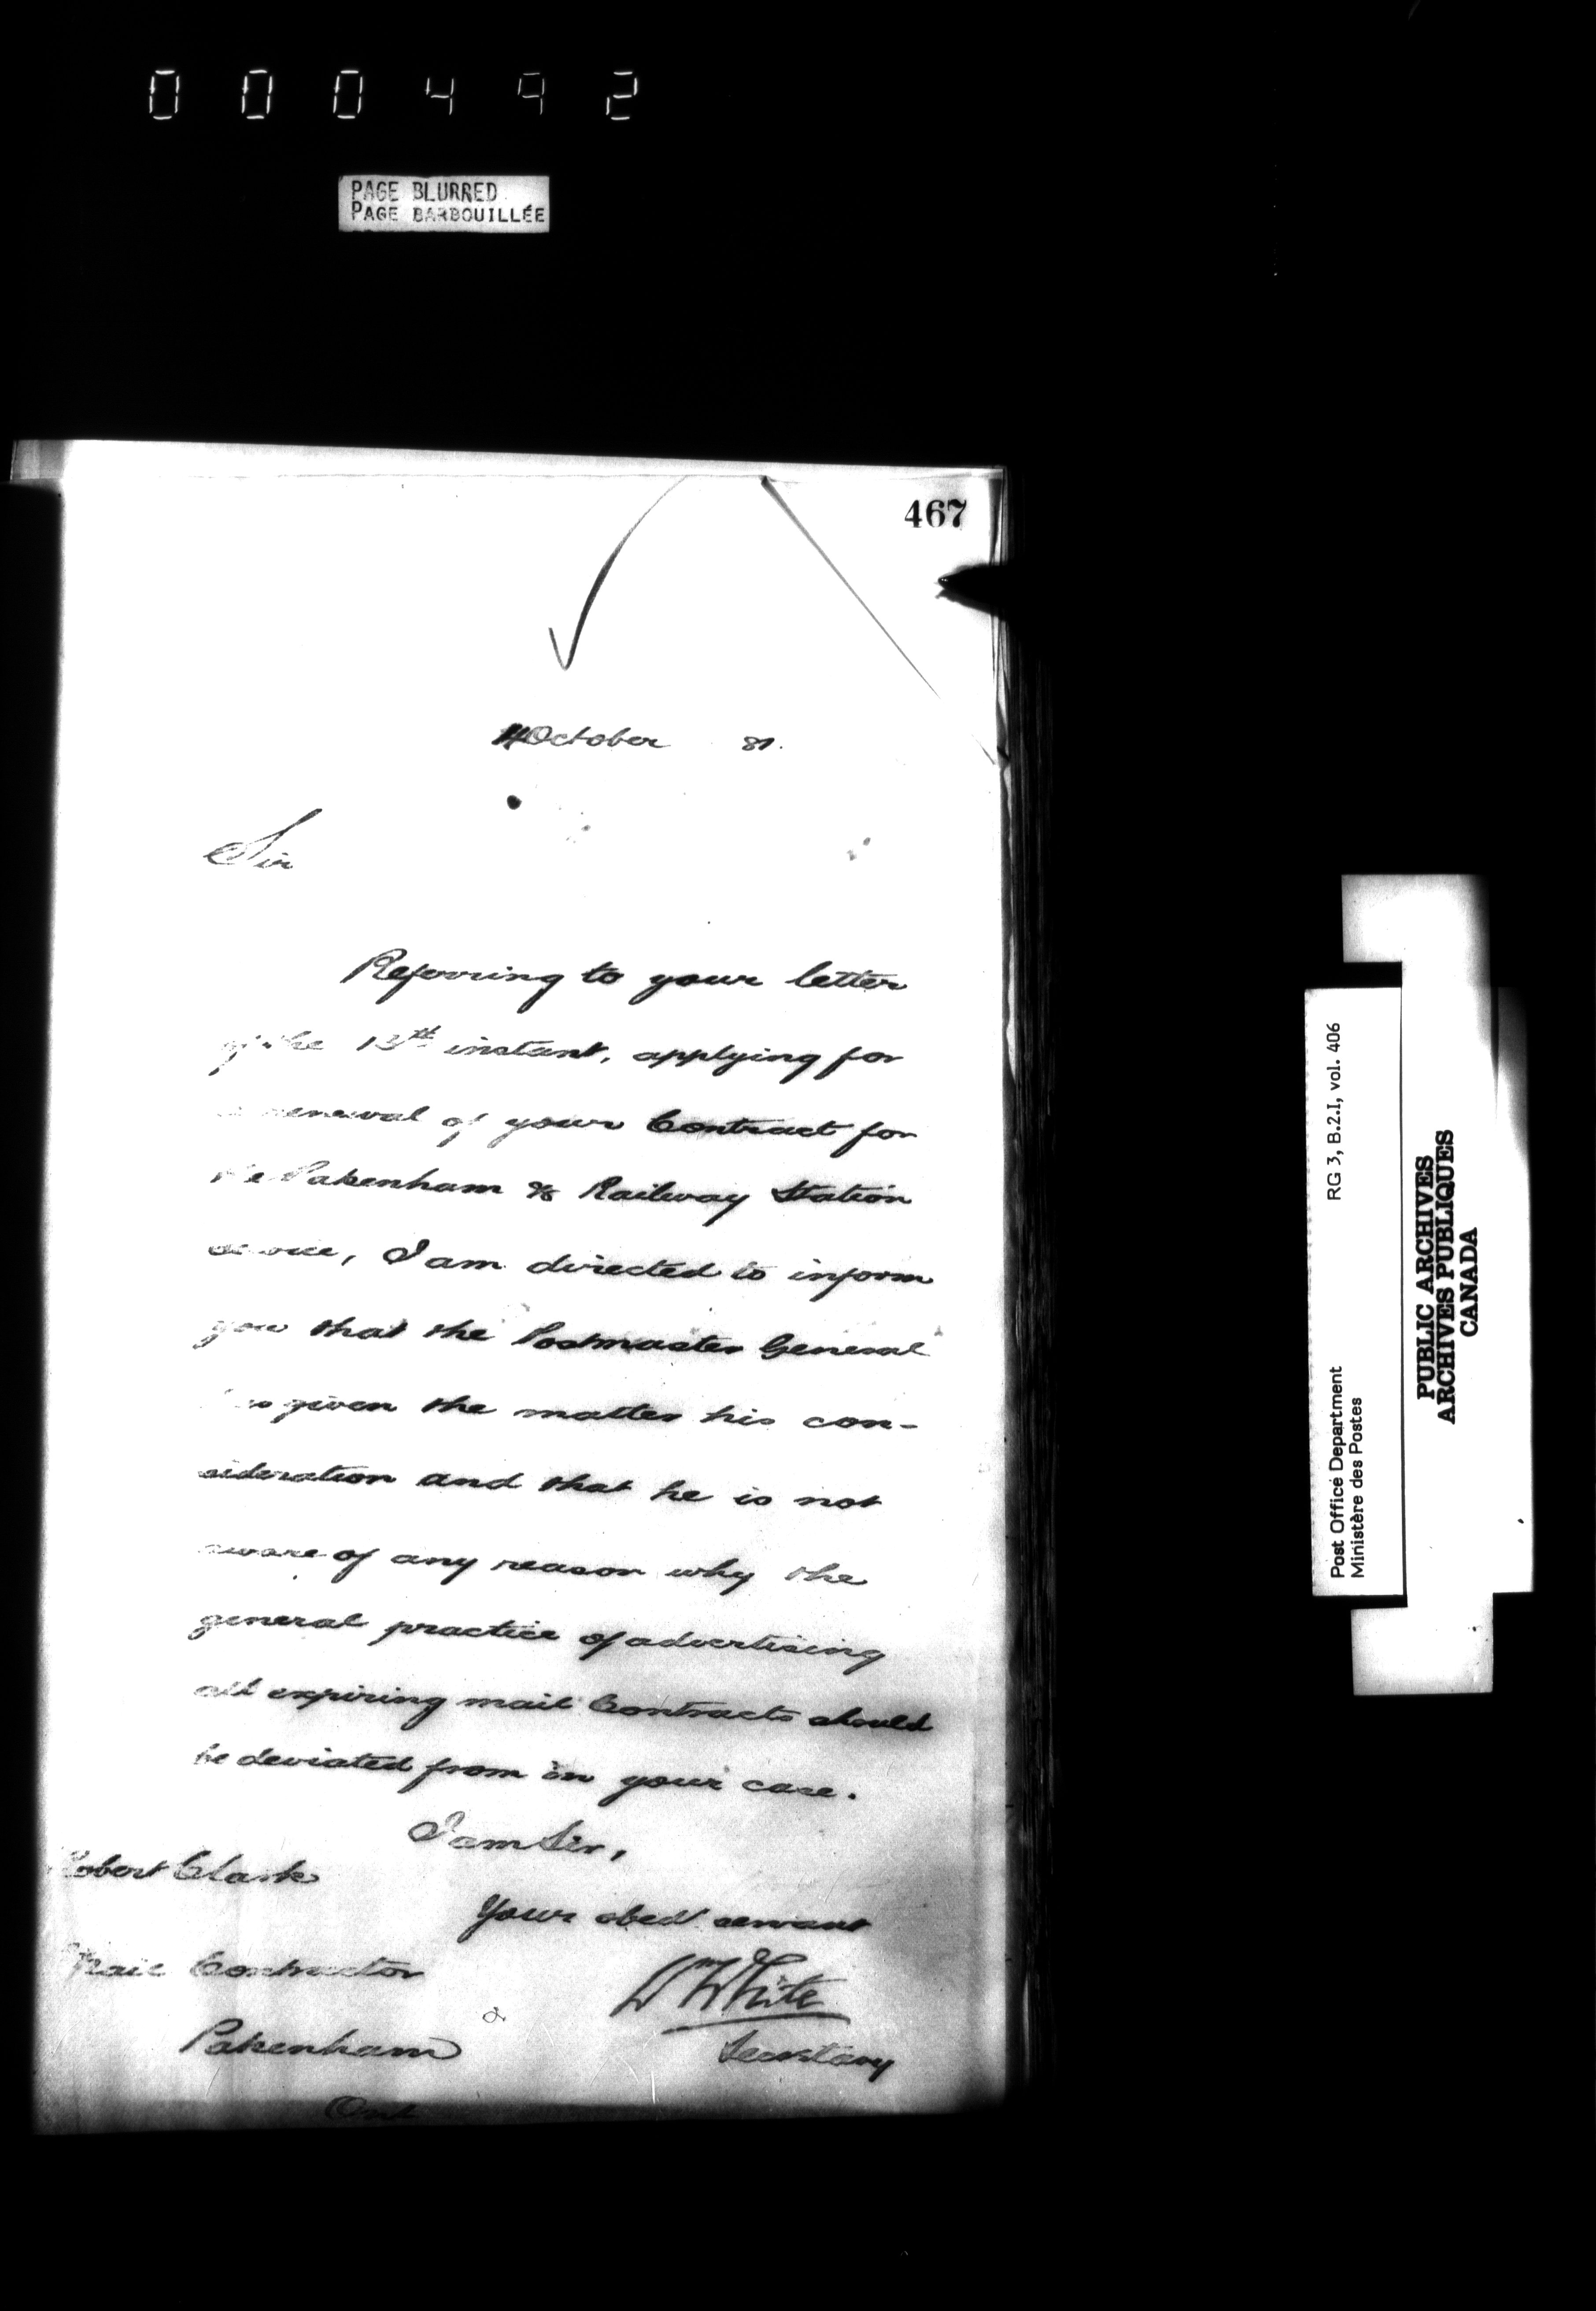 000492
PAGE BLURRED
PAGE BARBOUILLÉE
467
14 October 81.
Sir
Referring to your letter
of the 13th instant, applying for
a renewal of your Contract for
the Pakenham & Railway Station
service, I am directed to inform
you that the Postmaster General
has given the matter his con-
sideration and that he is not
aware of any reason why the
general practice of advertising
all expiring mail Contracts should
be deviated from in your case.
I am Sir,
Your obedt servant
Wm White
Secretary
Robert Clark
Mail Contractor
Pakenham
Ont
RG 3, B.2.I, vol. 406
Post Office Department
Ministère des Postes
PUBLIC ARCHIVES
ARCHIVES PUBLIQUES
CANADA